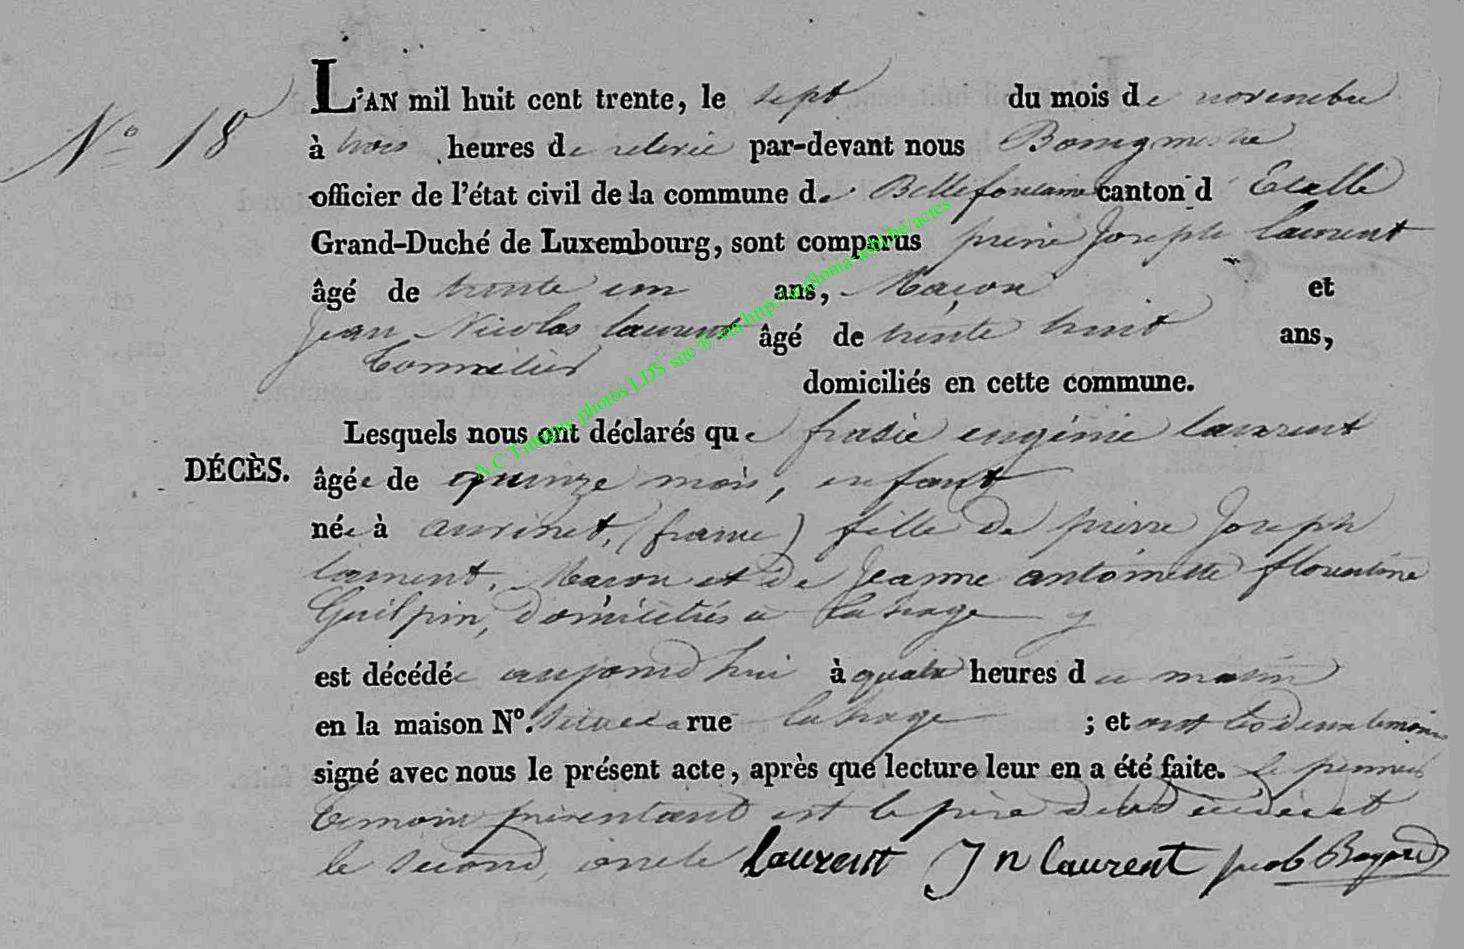 L'AN mil huit cent trente, le sept du mois de novembre
N° 18
à trois heures de relevée par-devant nous Bourgmestre
officier de l'état civil de la commune de Bellefontaine canton d Etalle
Grand-Duché de Luxembourg, sont comparus pierre Joseph laurent
âgé de trente un ans, Maçon et
Jean Nicolas laurent âgé de trente huit ans,
Tonnelier
domiciliés en cette commune.
Lesquels nous ont déclarés que frasie eugénie laurent
DÉCÈS.
âgée de quinze mois, enfant
née à (france) fille de pierre Joseph
laurent, Macon et de Jeanne antoinette florentine
Guilpin, domiciliés a Lahage
est décédée aujourd'hui à quatre heures du matin
en la maison N°. située a rue Lahage ; et ont les deux temoins
signé avec nous le présent acte, après que lecture leur en a été faite. le premier
temoin présentant est le père de la décédée et
le second, oncle laurent J n laurent Bayard
A C Tintigny photos LDS site ® via http://wallonia-asbl.be/actes